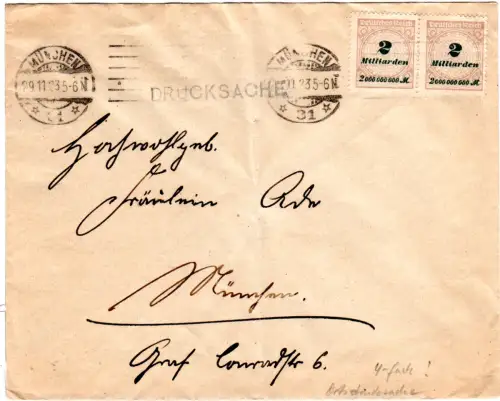 MÜNCHEN
29.11.23.5-6N
31
DRUCKSACHE
MÜNCHEN
31
Deutsches Reich
2
Milliarden
2000000000 M.
Deutsches Reich
2
Milliarden
2000000000 M.
Hochwohlgeb.
Fräulein Ade
München.
Graf Conradstr 6.
4-fach!
Ortsdrucksache